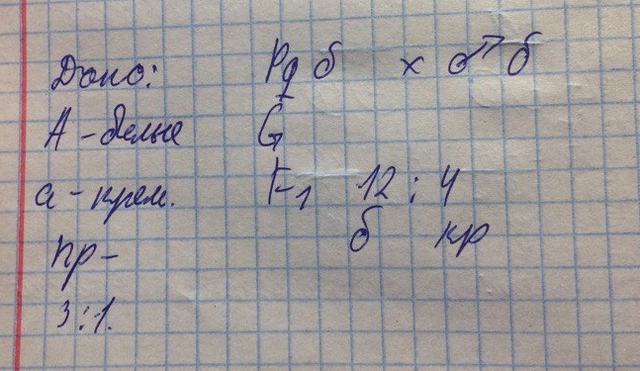 Дано:
P ♀ б x ♂ б
А - белые
G
а - крем.
F1 12 : 4
б кр
пр -
3:1.